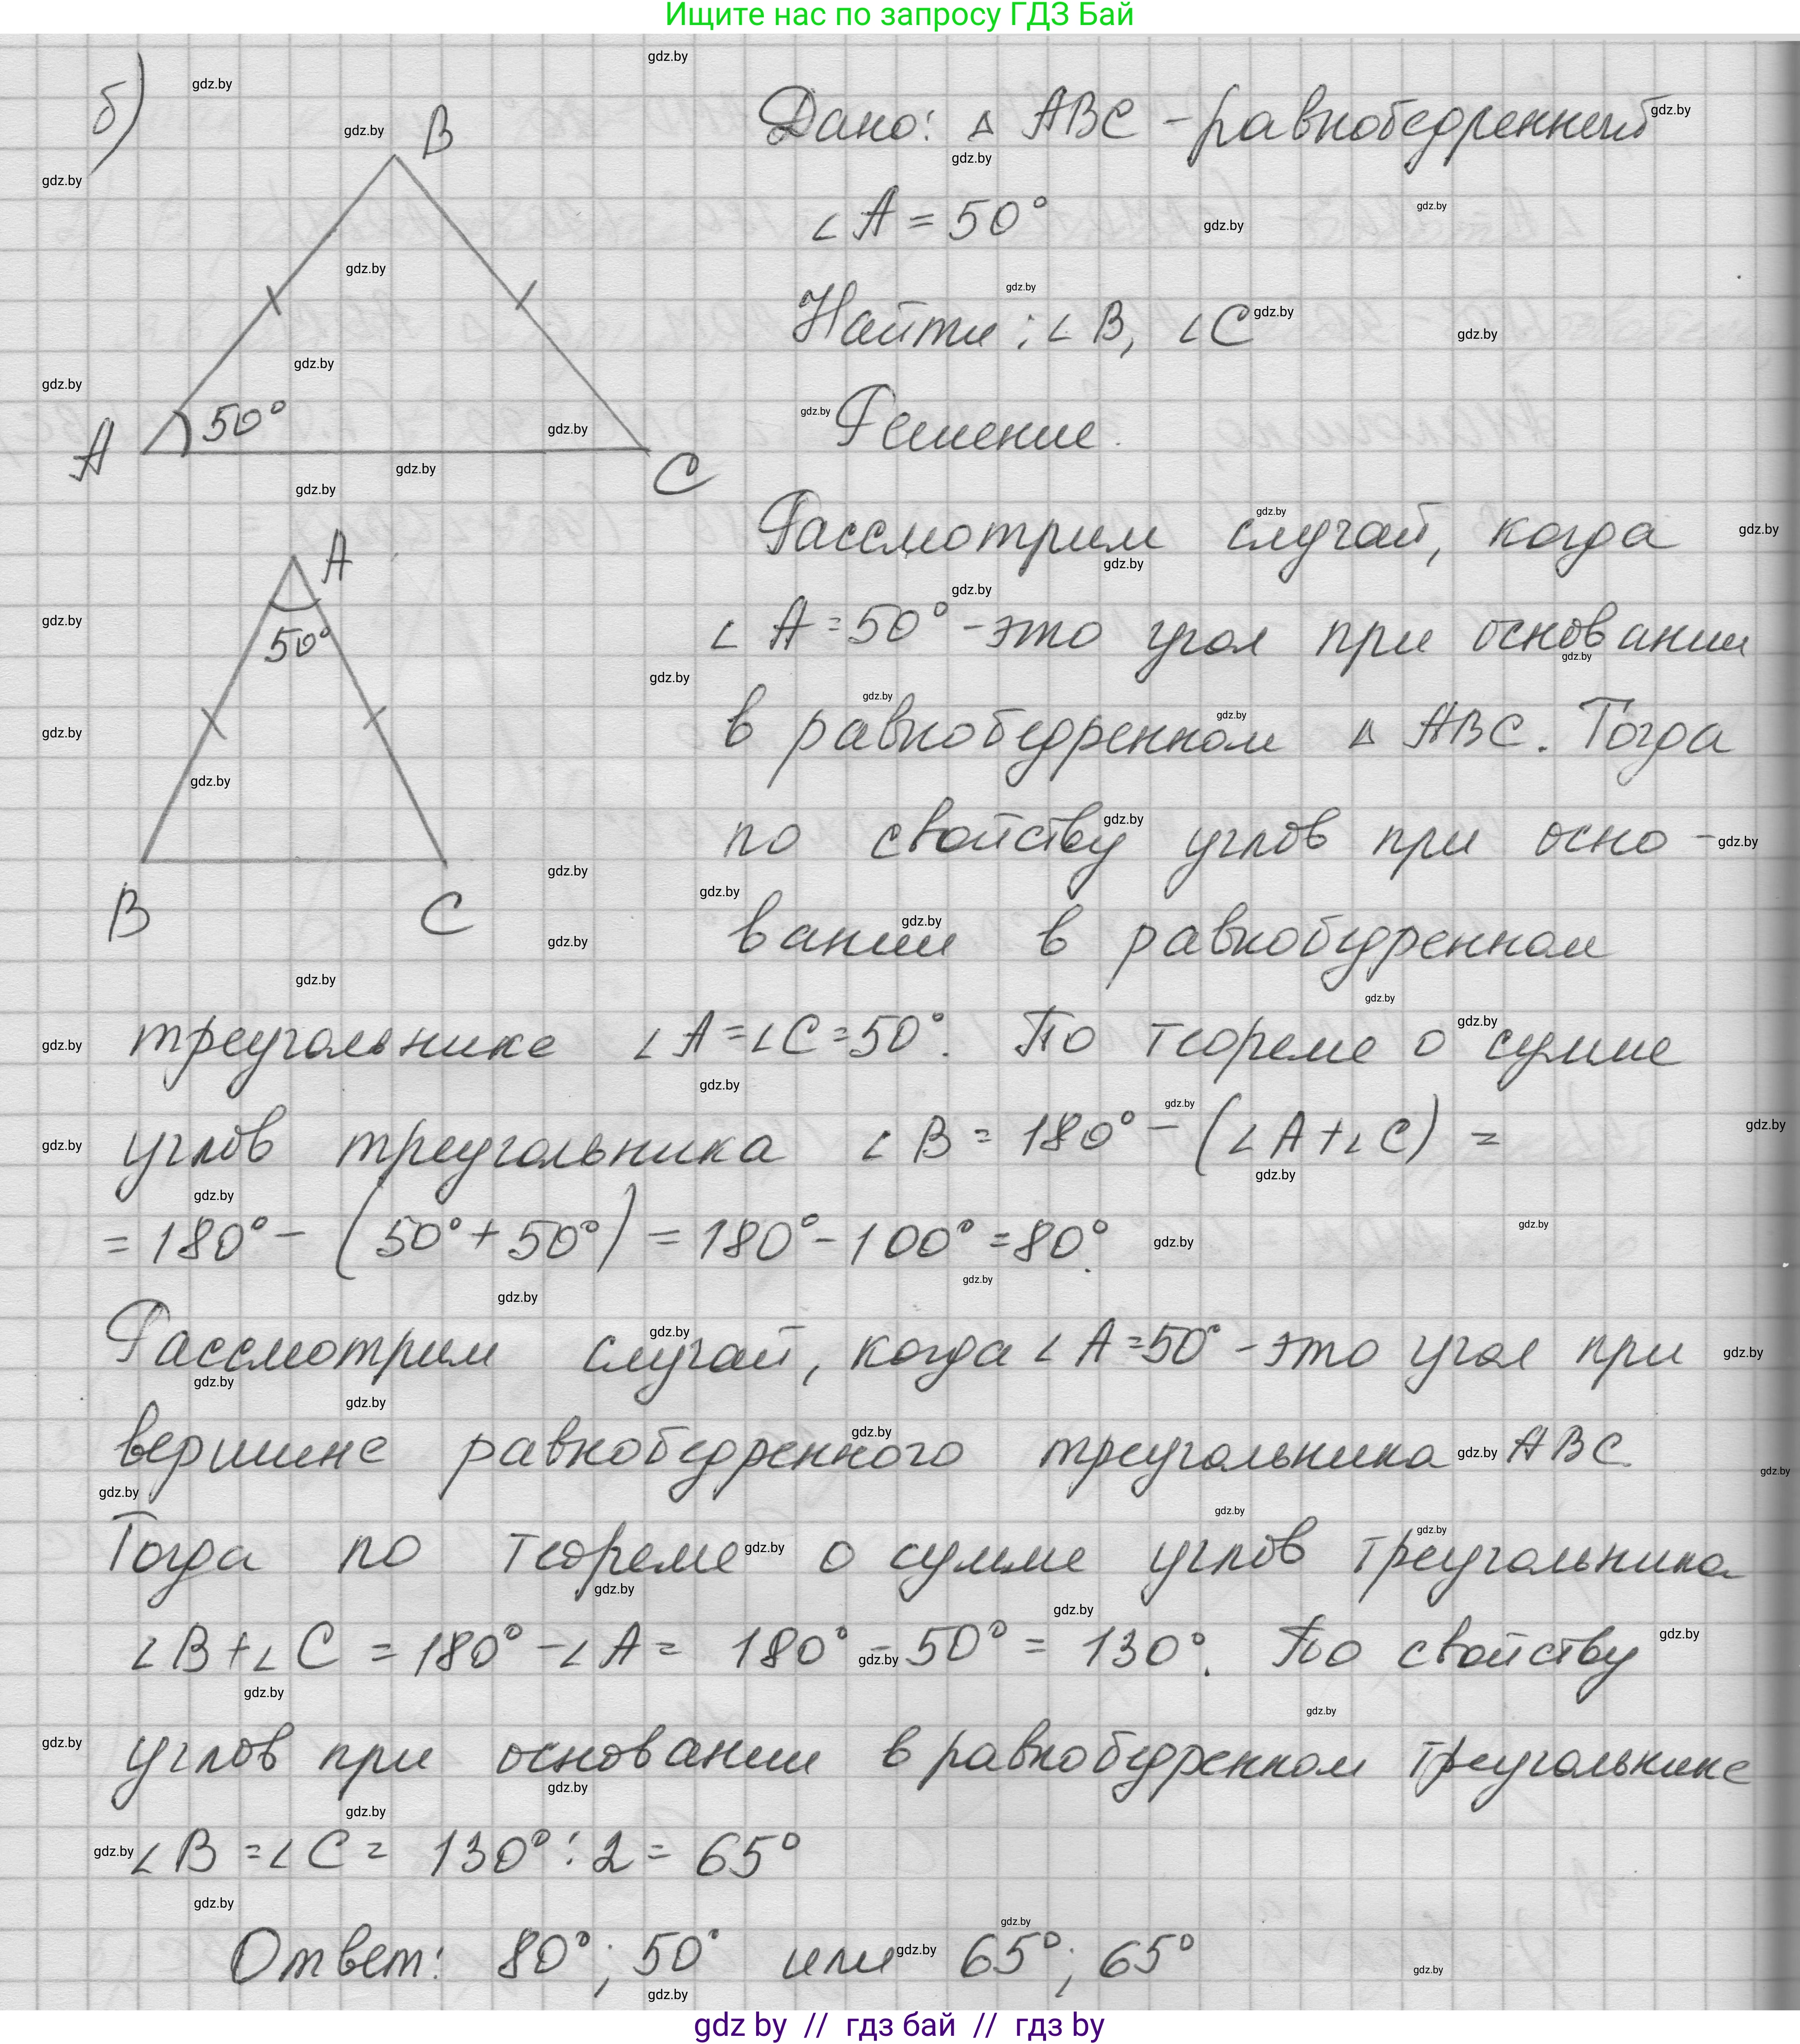 Ищите нас по запросу ГДЗ Бай
б)
B
Дано: △ ABC - равнобедренный
∠A = 50°
Найти: ∠B, ∠C
A 50° C
Решение.
A
50°
B C
Рассмотрим случай, когда
∠A = 50° - это угол при основании
в равнобедренном △ ABC. Тогда
по свойству углов при осно-
вании в равнобедренном
треугольнике ∠A = ∠C = 50°. По теореме о сумме
углов треугольника ∠B = 180° - (∠A + ∠C) =
= 180° - (50° + 50°) = 180° - 100° = 80°.
Рассмотрим случай, когда ∠A = 50° - это угол при
вершине равнобедренного треугольника ABC.
Тогда по теореме о сумме углов треугольника
∠B + ∠C = 180° - ∠A = 180° - 50° = 130°. По свойству
углов при основании в равнобедренном треугольнике
∠B = ∠C = 130° : 2 = 65°
Ответ: 80°; 50° или 65°; 65°
gdz by // гдз бай // гдз by